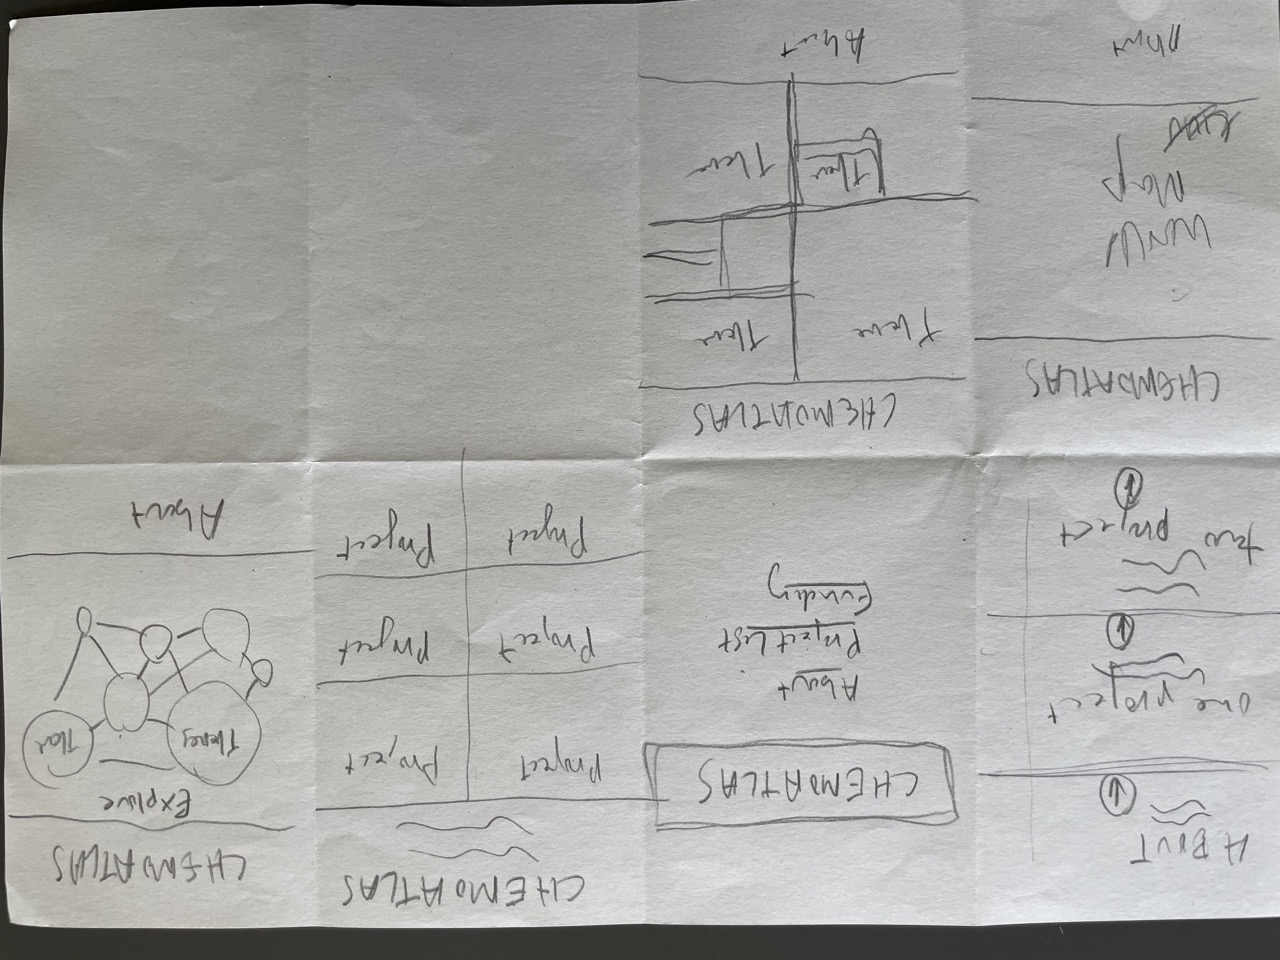 ABOUT
one project
two project
CHEMOATLAS
About
Project List
Funding
CHEMOATLAS
Project
Project
Project
Project
Project
Project
CHEMOATLAS
Explore
Themes
Theme
About
CHEMOATLAS
World
Map
About
CHEMOATLAS
Theme
Theme
Theme
Theme
About